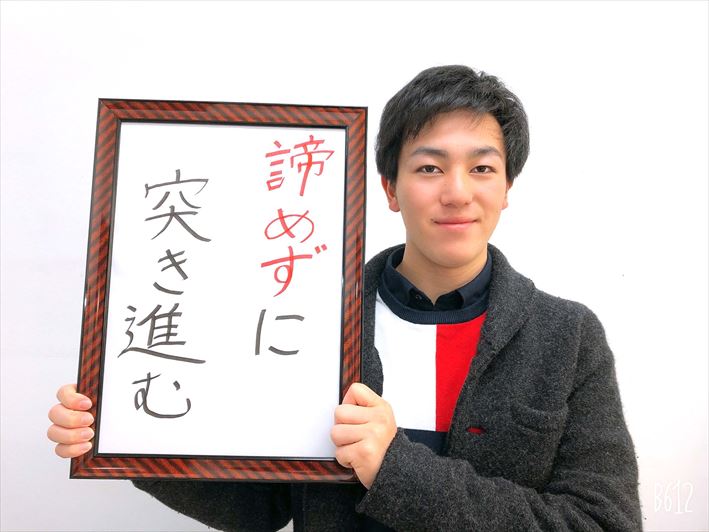 諦めずに
突き進む
B612